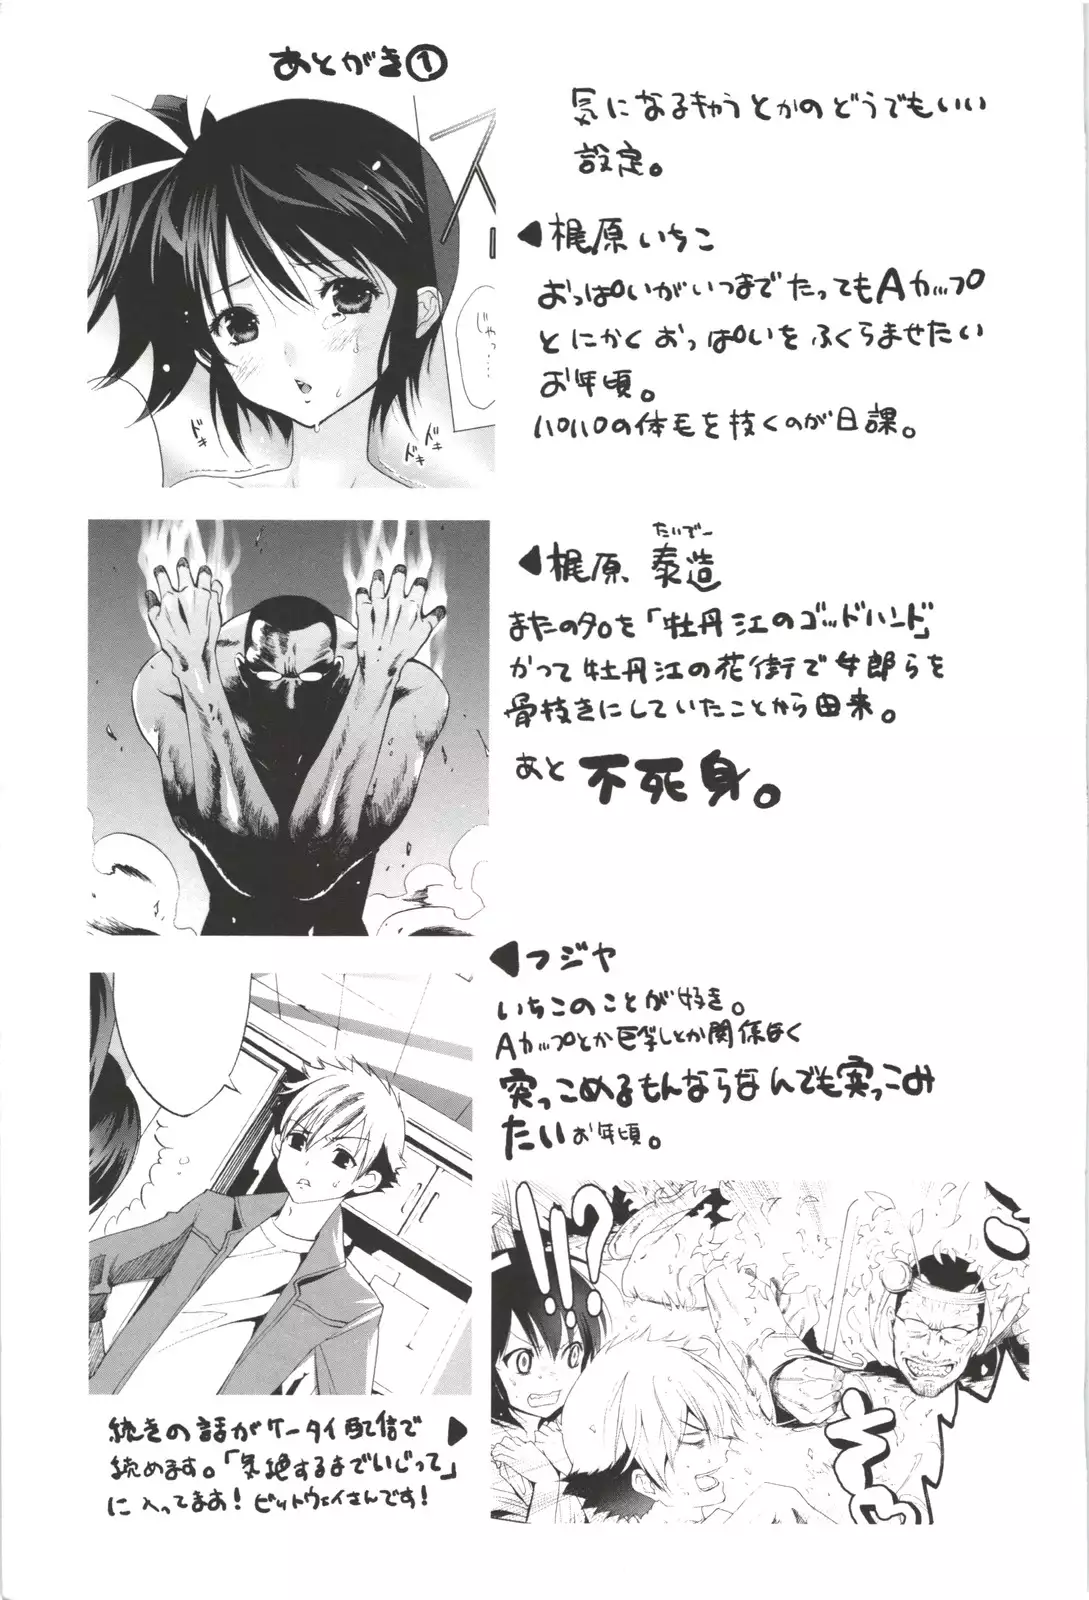 あとがき①
気になるキャラとかのどうでもいい
設定。
◀梶原いちこ
おっぱいがいつまでたってもAカップ
とにかくおっぱいをふくらませたい
お年頃。
パパの体毛を抜くのが日課。
たいぞー
◀梶原 泰造
またの名を「牡丹江のゴッドハンド」
かつて牡丹江の花街で女郎らを
骨抜きにしていたことから由来。
あと不死身。
◀フジヤ
いちこのことが好き。
Aカップとか巨乳とか関係なく
突っこめるもんならなんでも突っこみ
たいお年頃。
続きの話がケータイ配信で▶
読めます。「気絶するまでいじって」
に入ってまあ！ビットウェイさんです！
じゃっ…
ドキ
ドキ
!!!?